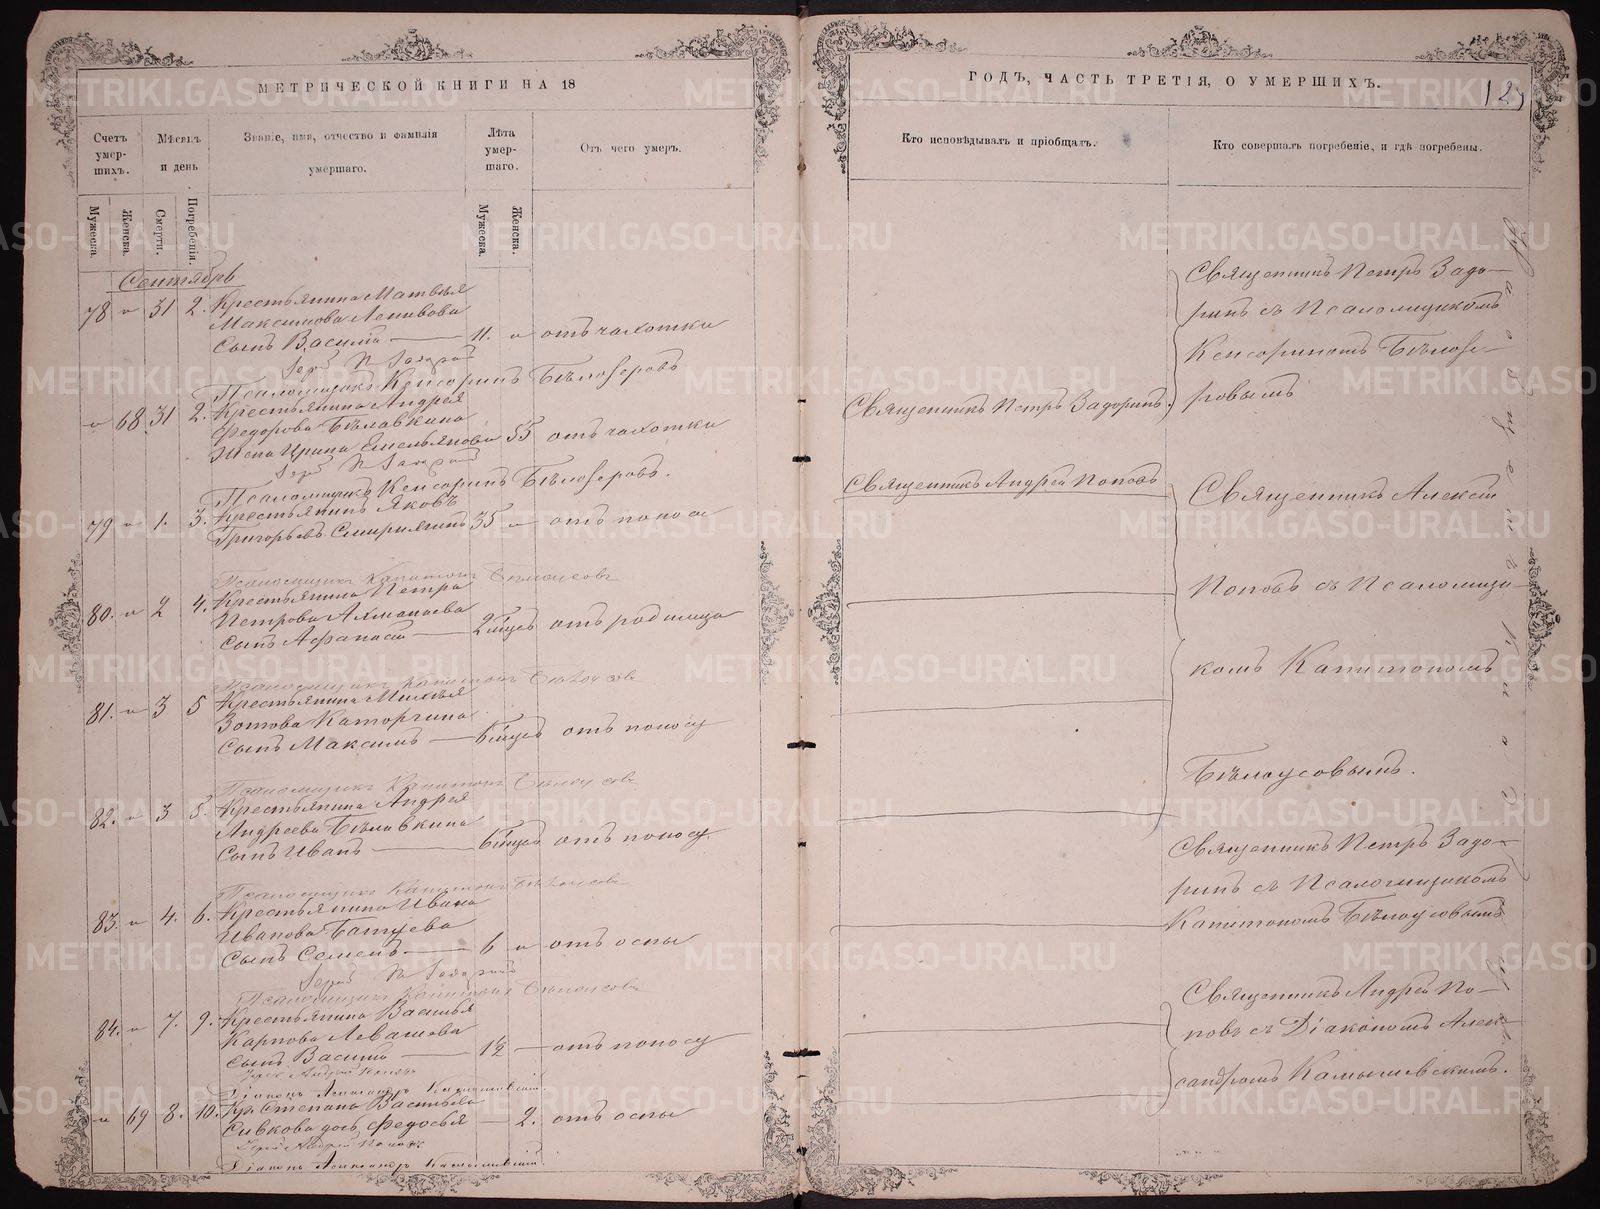 МЕТРИЧЕСКОЙ КНИГИ НА 18
Счетъ умер-шихъ.
Мѣсяцъ и день
Званіе, имя, отчество и фамилія умершаго.
Лѣта умер-шаго.
Отъ чего умеръ.
Мужеска.
Женска.
Смерти.
Погребенія.
Мужеска.
Женска.
Сентябрь
78 " 31 2. Крестьянина Матвѣя
Максимова Ленивова
Сынъ Василій — 11. " отъ чахотки
Псаломщикъ Кенсоринъ Бѣлозеровъ
" 68 31 2. Крестьянина Андрея
Федорова Бѣлавкина
Жена Ирина Емельянова 55 отъ чахотки
Псаломщикъ Кенсоринъ Бѣлозеровъ.
79 " 1. 3. Крестьянинъ Яковъ
Григорьевъ Смирнягинъ 35 " отъ поноса
Псаломщикъ Капитонъ Бѣлоусовъ
80. " 2 4. Крестьянина Петра
Петрова
Сынъ Афанасій — 2 мѣсць отъ родимца
Псаломщикъ Капитонъ Бѣлоусовъ
81. " 3 5 Крестьянина Михѣя
Зотова Каторгина
Сынъ Максимъ — 6 мѣсць отъ поносу
Псаломщикъ Капитонъ Бѣлоусовъ
82. " 3 5. Крестьянина Андрея
Андреева Бѣлавкина
Сынъ Иванъ — 6 мѣсць отъ поносу
Псаломщикъ Капитонъ Бѣлоусовъ
83. " 4. 6. Крестьянина Ивана
Иванова Батуева
Сынъ Семенъ — 6 " отъ оспы
Псаломщикъ Капитонъ Бѣлоусовъ
84. " 7. 9. Крестьянина Василья
Карпова Левашева
Сынъ Василій — 12 — отъ поносу
Іерей Андрей Поповъ
Діаконъ Александръ Камышевскій.
" 69 8. 10. Кр. Степана Васильева
Сивкова дочь Федосья — 2. отъ оспы
Іерей Андрей Поповъ
Діаконъ Александръ Камышевскій.
ГОДЪ, ЧАСТЬ ТРЕТІЯ, О УМЕРШИХЪ.
Кто исповѣдывалъ и пріобщалъ.
Кто совершалъ погребеніе, и гдѣ погребены.
Священникъ Петръ Задо-
ринъ съ Псаломщикомъ
Кенсориномъ Бѣлозе-
ровымъ
Священникъ Петръ Задоринъ.
Священникъ Андрей Поповъ
Священникъ Алексій
Поповъ съ Псаломщи-
комъ Капитономъ
Бѣлоусовымъ.
Священникъ Петръ Задо-
ринъ съ Псаломщикомъ
Капитономъ Бѣлоусовымъ
Священникъ Андрей По-
повъ съ Діакономъ Алек-
сандромъ Камышевскимъ.
METRIKI.GASO-URAL.RU